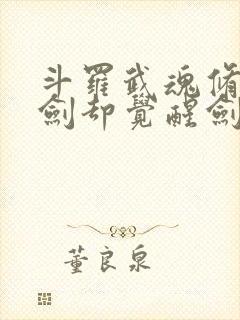 斗羅武魂脩
劍却覺醒劍
董良泉